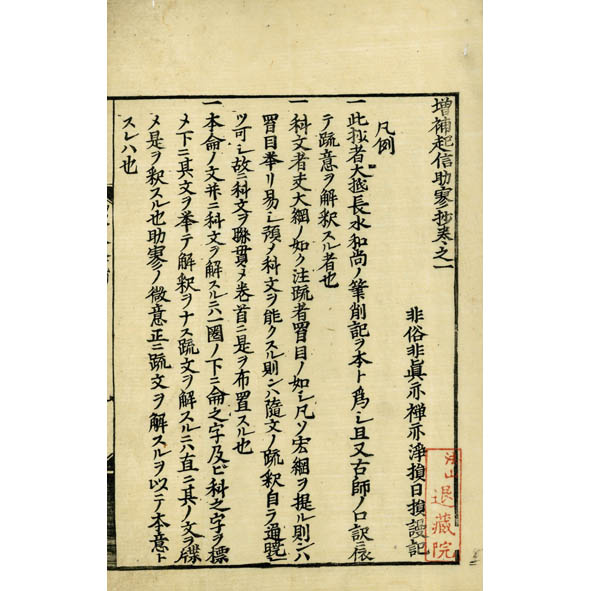 増補起信助寥抄巻之一
非俗非眞亦禅亦淨損日損謾記
凡例
一此抄者大抵長水和尚ノ筆削記ヲ本ト爲シ且又古師ノ口訳ニ依
テ疏意ヲ解釈スル者也
一科文者支大綱ノ如ク注疏者罾目ノ如シ凡ソ宏綱ヲ提ル則ンハ
罾目挙リ易シ預メ科文ヲ能クスル則ンハ隨文ノ疏釈自ラ通暁
ツ可シ故ニ科文ヲ聨貫〆巻首ニ是ヲ布置スル也
一本侖ノ文并ニ科文ヲ解スルニハ一圏ノ下ニ侖之字及ビ科之字ヲ標
〆下ニ其文ヲ挙テ解釈ヲナス疏文ヲ解スルニハ直ニ其ノ文ヲ牒
〆是ヲ釈スル也助寥ノ微意正ニ疏文ヲ解スルヲ以テ本意ト
スレハ也
退藏院